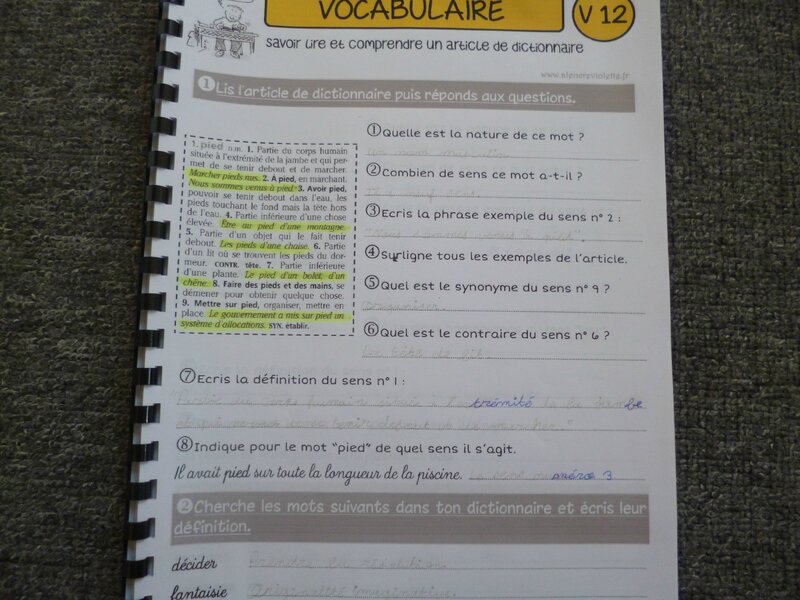 VOCABULAIRE
V 12
Savoir lire et comprendre un article de dictionnaire
www.alenoreviolette.fr
1 Lis l'article de dictionnaire puis réponds aux questions.
1. pied n.m. 1. Partie du corps humain
située à l'extrémité de la jambe et qui per-
met de se tenir debout et de marcher.
Marcher pieds nus. 2. À pied, en marchant.
Nous sommes venus à pied. 3. Avoir pied,
pouvoir se tenir debout dans l'eau, les
pieds touchant le fond mais la tête hors
de l'eau. 4. Partie inférieure d'une chose
élevée. Être au pied d'une montagne.
5. Partie d'un objet qui le fait tenir
debout. Les pieds d'une chaise. 6. Partie
d'un lit où se trouvent les pieds du dor-
meur. CONTR. tête. 7. Partie inférieure
d'une plante. Le pied d'un bolet, d'un
chêne. 8. Faire des pieds et des mains, se
démener pour obtenir quelque chose.
9. Mettre sur pied, organiser, mettre en
place. Le gouvernement a mis sur pied un
système d'allocations. SYN. établir.
1 Quelle est la nature de ce mot ?
Un nom masculin
2 Combien de sens ce mot a-t-il ?
neuf sens.
3 Ecris la phrase exemple du sens n° 2 :
"Nous sommes venus à pied".
4 Surligne tous les exemples de l'article.
5 Quel est le synonyme du sens n° 9 ?
organiser.
6 Quel est le contraire du sens n° 6 ?
La tête de lit.
7 Ecris la définition du sens n° 1 :
"Partie du corps humain située à l'extrémité de la jambe
et qui permet de se tenir debout et de marcher."
8 Indique pour le mot "pied" de quel sens il s'agit.
Il avait pied sur toute la longueur de la piscine. Le sens numéro 3
2 Cherche les mots suivants dans ton dictionnaire et écris leur
définition.
décider Prendre la résolution.
fantaisie Originalité imaginative.